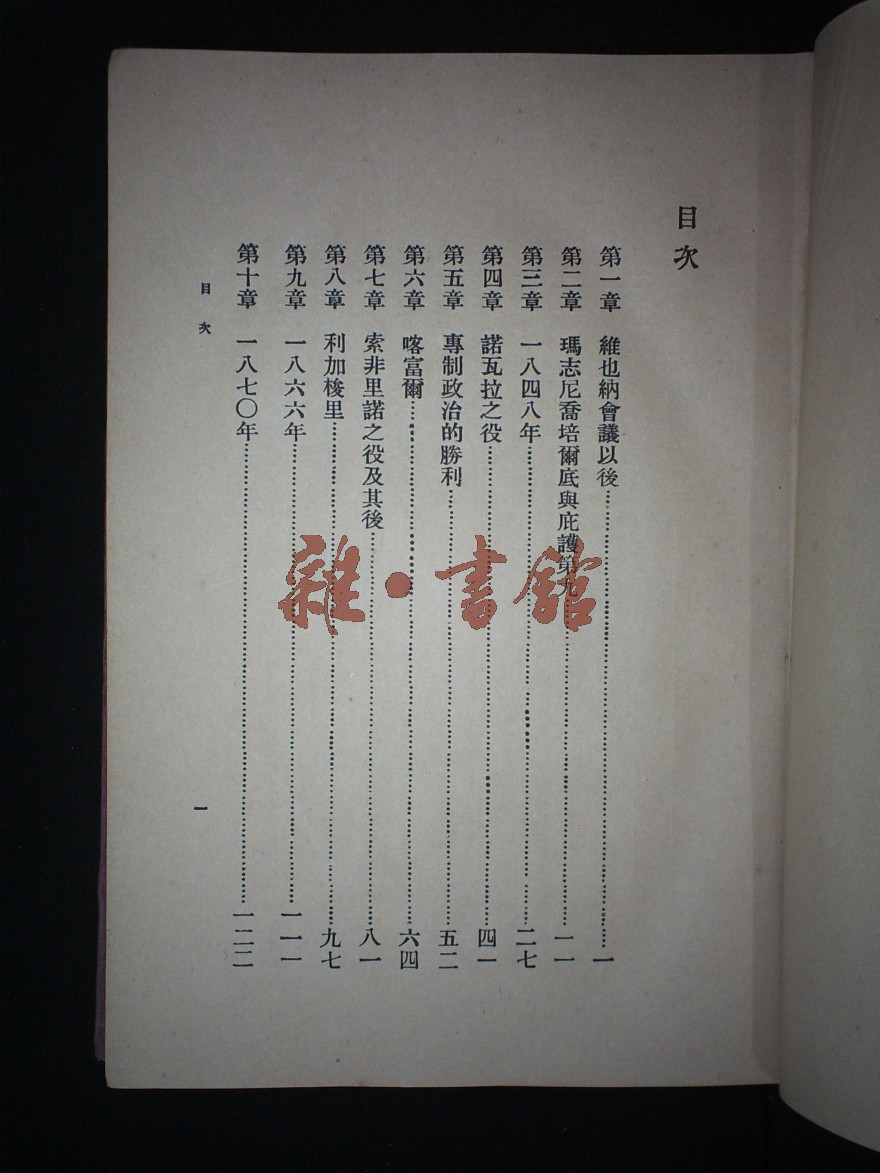 目次
第一章 維也納會議以後……一
第二章 瑪志尼喬培爾底與庇護第九……一一
第三章 一八四八年……二七
第四章 諾瓦拉之役……四一
第五章 專制政治的勝利……五二
第六章 喀富爾……六四
第七章 索非里諾之役及其後……八一
第八章 利加梭里……九七
第九章 一八六六年……一一一
第十章 一八七〇年……一二二
目次 一
雜·書館